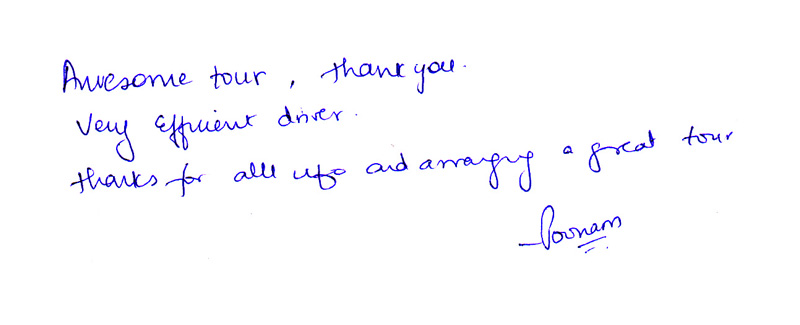 Awesome tour, thank you.
Very efficient driver.
thanks for all info and arranging a great tour
- Poonam